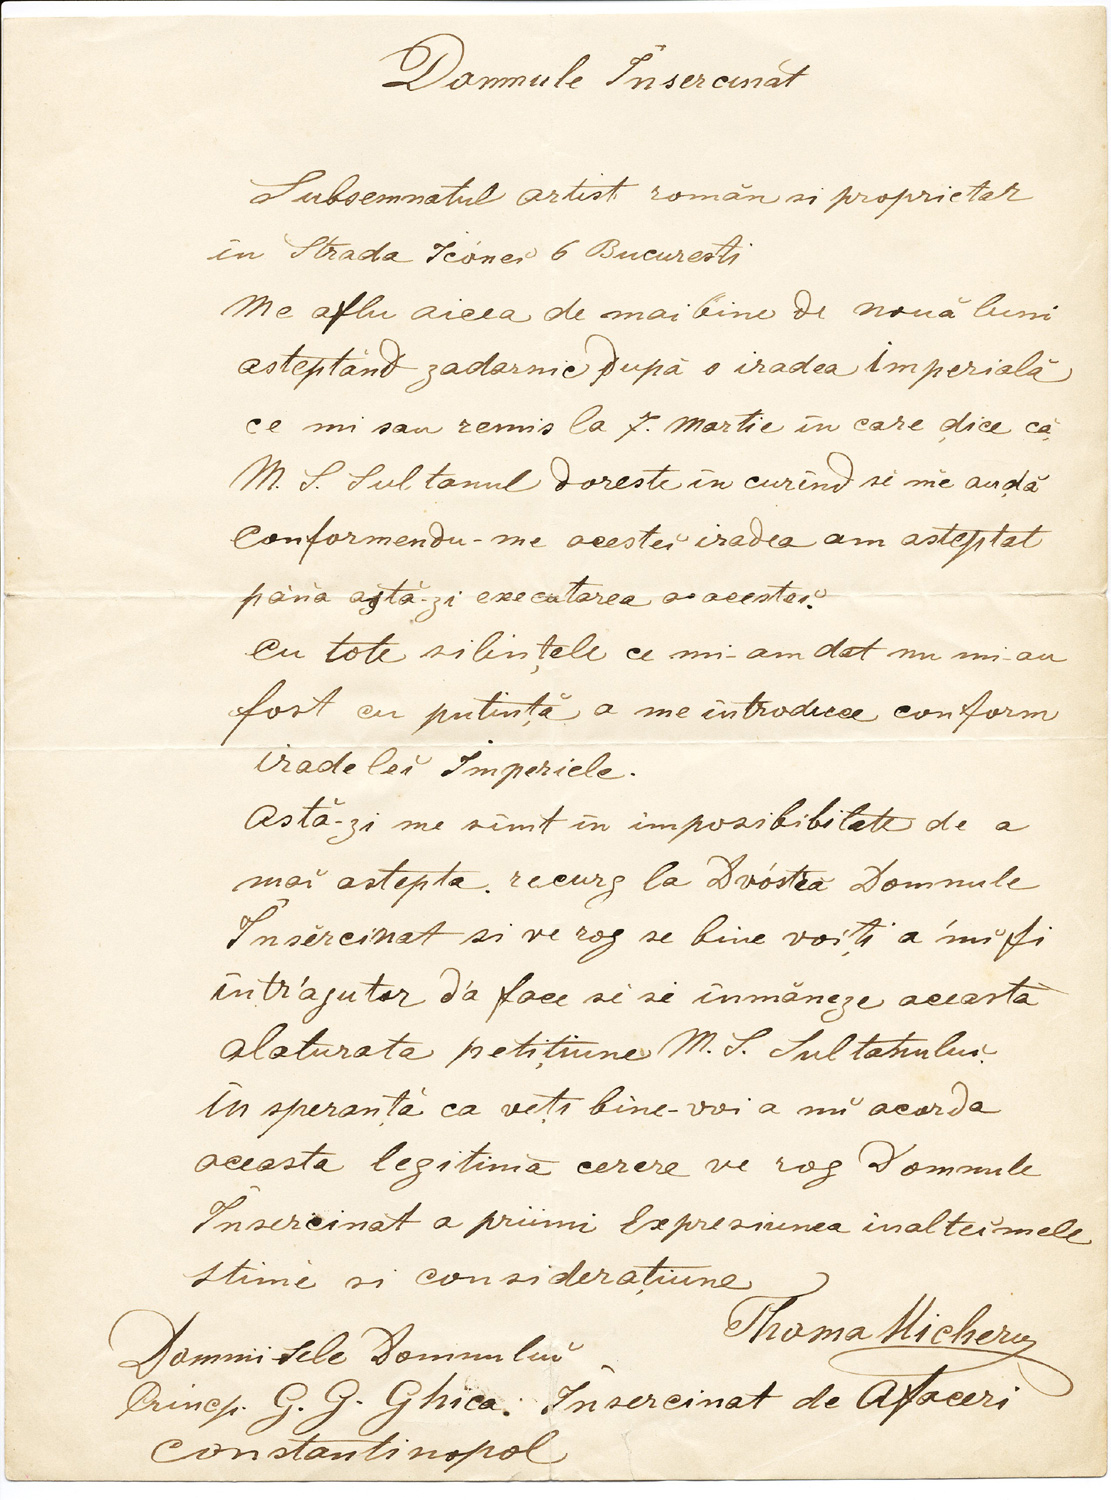 Domnule Însercinat
Subsemnatul artistromăn si proprietar
în Strada Icónei 6 Bucuresti
Me aflu aicea de mai bine de nouă luni
asteptând zadarnic după o iradea Imperială
ce mi sau remis la 7. Martie in care dice că
M. S. Sultanul doreste in curînd si mĕ audă
Conformendu-me acestei iradea am asteptat
pănă astă-zi executarea a acestei.
Cu tote silințele ce mi-am dat nu mi-au
fost cu putință a me introduce conform
iradelei Imperiele.
Astă-zi me sîmt in imposibibilate de a
mai astepta. recurg la Dvóstra Domnule
Însĕrcinat si ve rog se bine voiți a 'mi fi
intr'ajutor d'a face si si înmăneze aceasta
alaturata petițiune M. S. Sultanului.
În speranță ca veți bine-voi a mi acorda
aceasta legitimă cerere ve rog Domnule
Însercinat a priimi Expresiunea inaltei mele
stime si considerațiune
Thoma Micheru
Domni sele Domnului
Princp. G. G. Ghica. Însercinat de Afaceri
Constantinopol